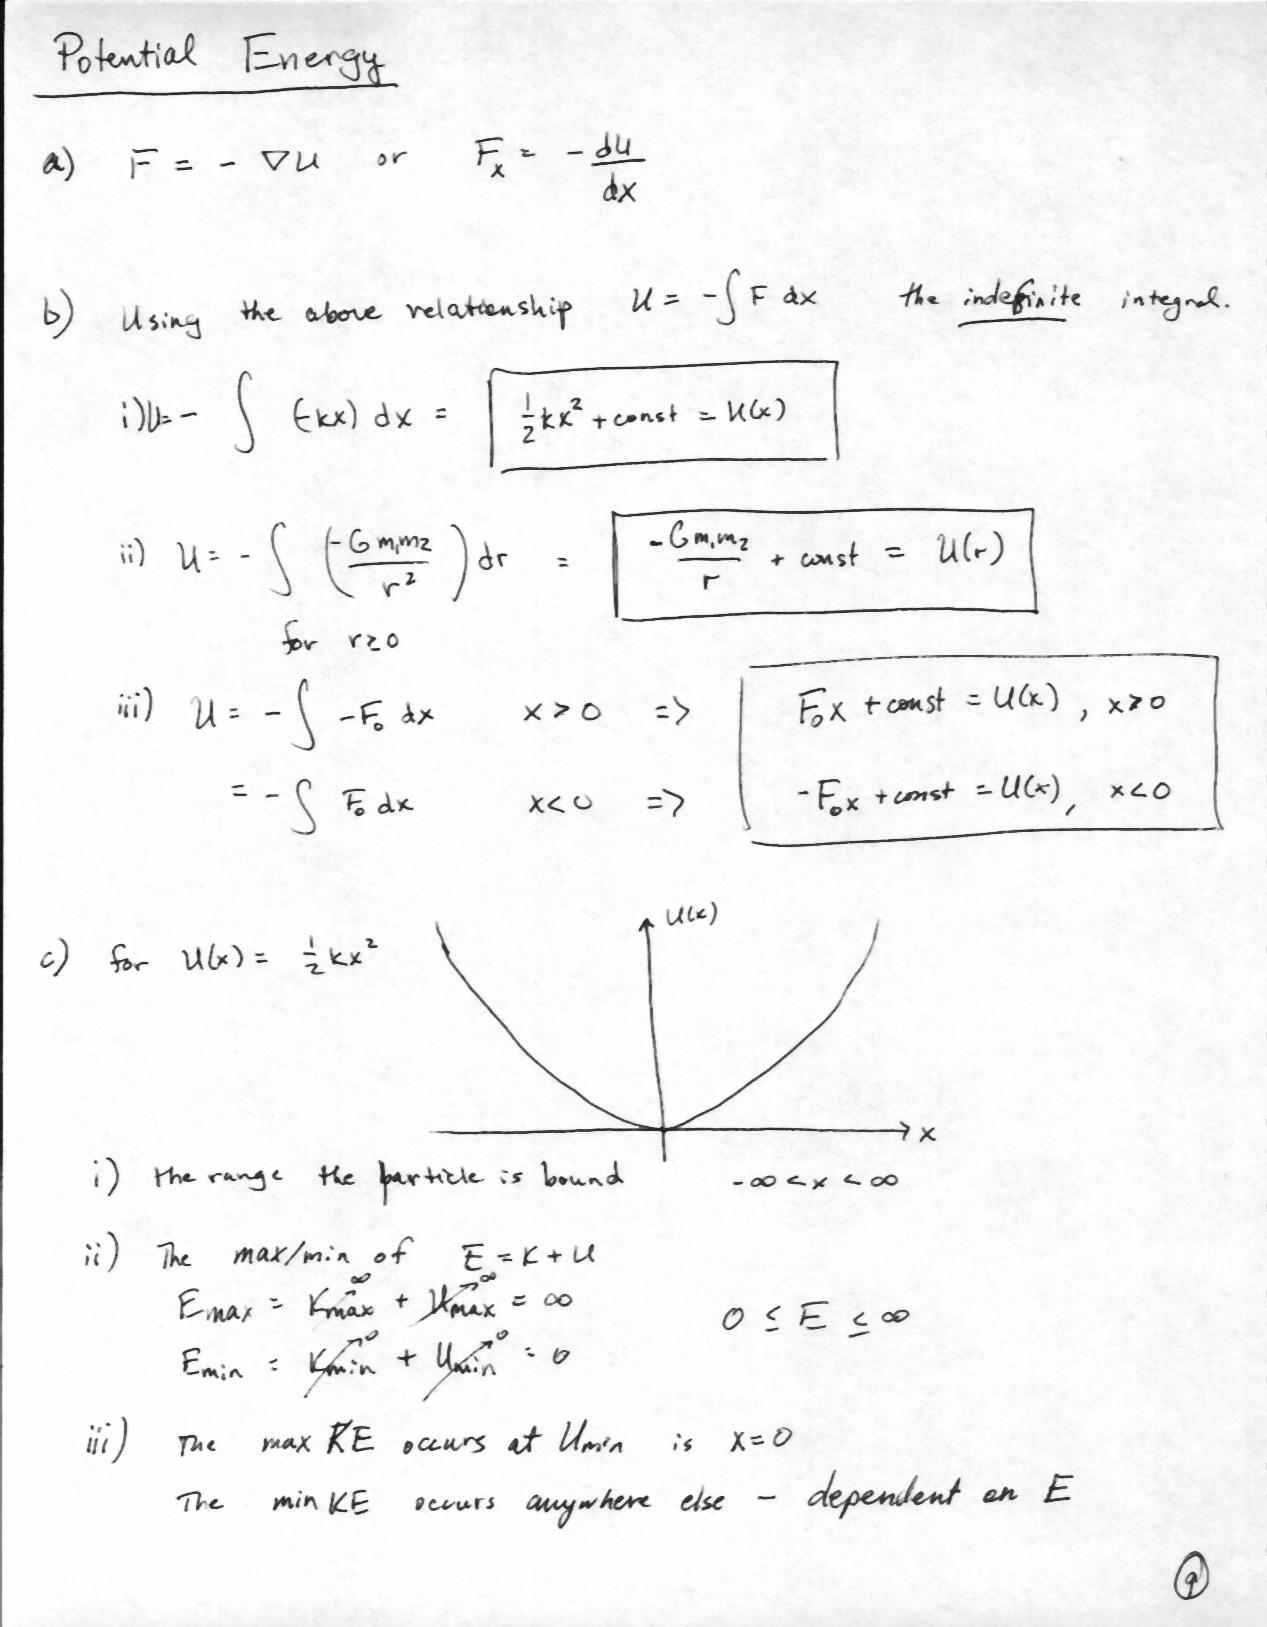 Potential Energy
a) F = - ∇U or F_x = - dU/dx
b) Using the above relationship U = -∫ F dx the indefinite integral.
i) U= - ∫ (-kx) dx = 1/2 kx² + const = U(x)
ii) U = - ∫ (-G m₁m₂ / r²) dr = -G m₁m₂ / r + const = U(r)
for r≥0
iii) U = - ∫ -F₀ dx x > 0 => F₀x + const = U(x), x>0
= - ∫ F₀ dx x<0 => -F₀x + const = U(x), x<0
U(x)
c) for U(x) = 1/2 kx²
x
i) the range the particle is bound -∞ < x < ∞
ii) The max/min of E = K + U
Emax = Kmax ∞ + Umax ∞ = ∞ 0 ≤ E ≤ ∞
Emin = Kmin 0 + Umin 0 = 0
iii) The max KE occurs at Umin is x=0
The min KE occurs anywhere else - dependent on E
9